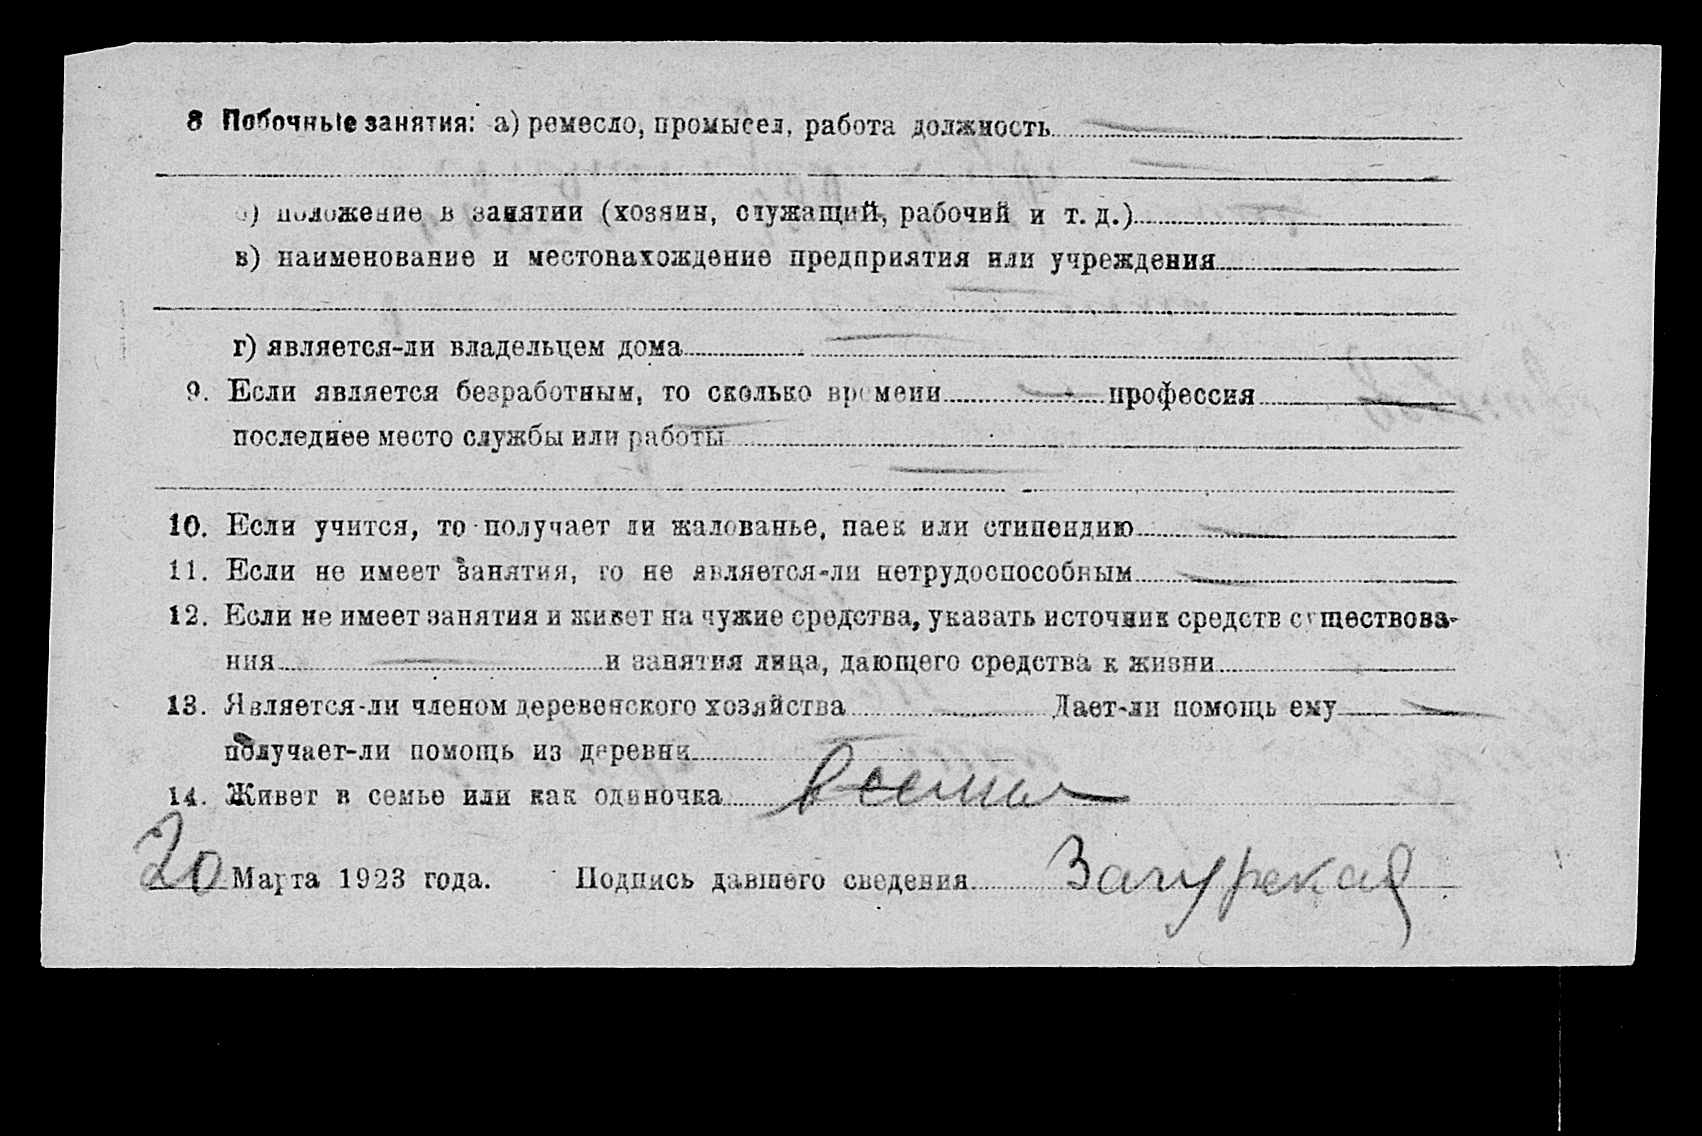 8 Побочные занятия: а) ремесло, промысел, работа должность
б) положение в занятии (хозяин, служащий, рабочий и т. д.)
в) наименование и местонахождение предприятия или учреждения
г) является-ли владельцем дома
9. Если является безработным, то сколько времени профессия
последнее место службы или работы
10. Если учится, то получает ли жалованье, паек или стипендию
11. Если не имеет занятия, то не является-ли нетрудоспособным
12. Если не имеет занятия и живет на чужие средства, указать источник средств существова-
ния и занятия лица, дающего средства к жизни
13. Является-ли членом деревенского хозяйства Дает-ли помощь ему
получает-ли помощь из деревни
14. Живет в семье или как одиночка в семьи
20 Марта 1923 года. Подпись давшего сведения Загурская